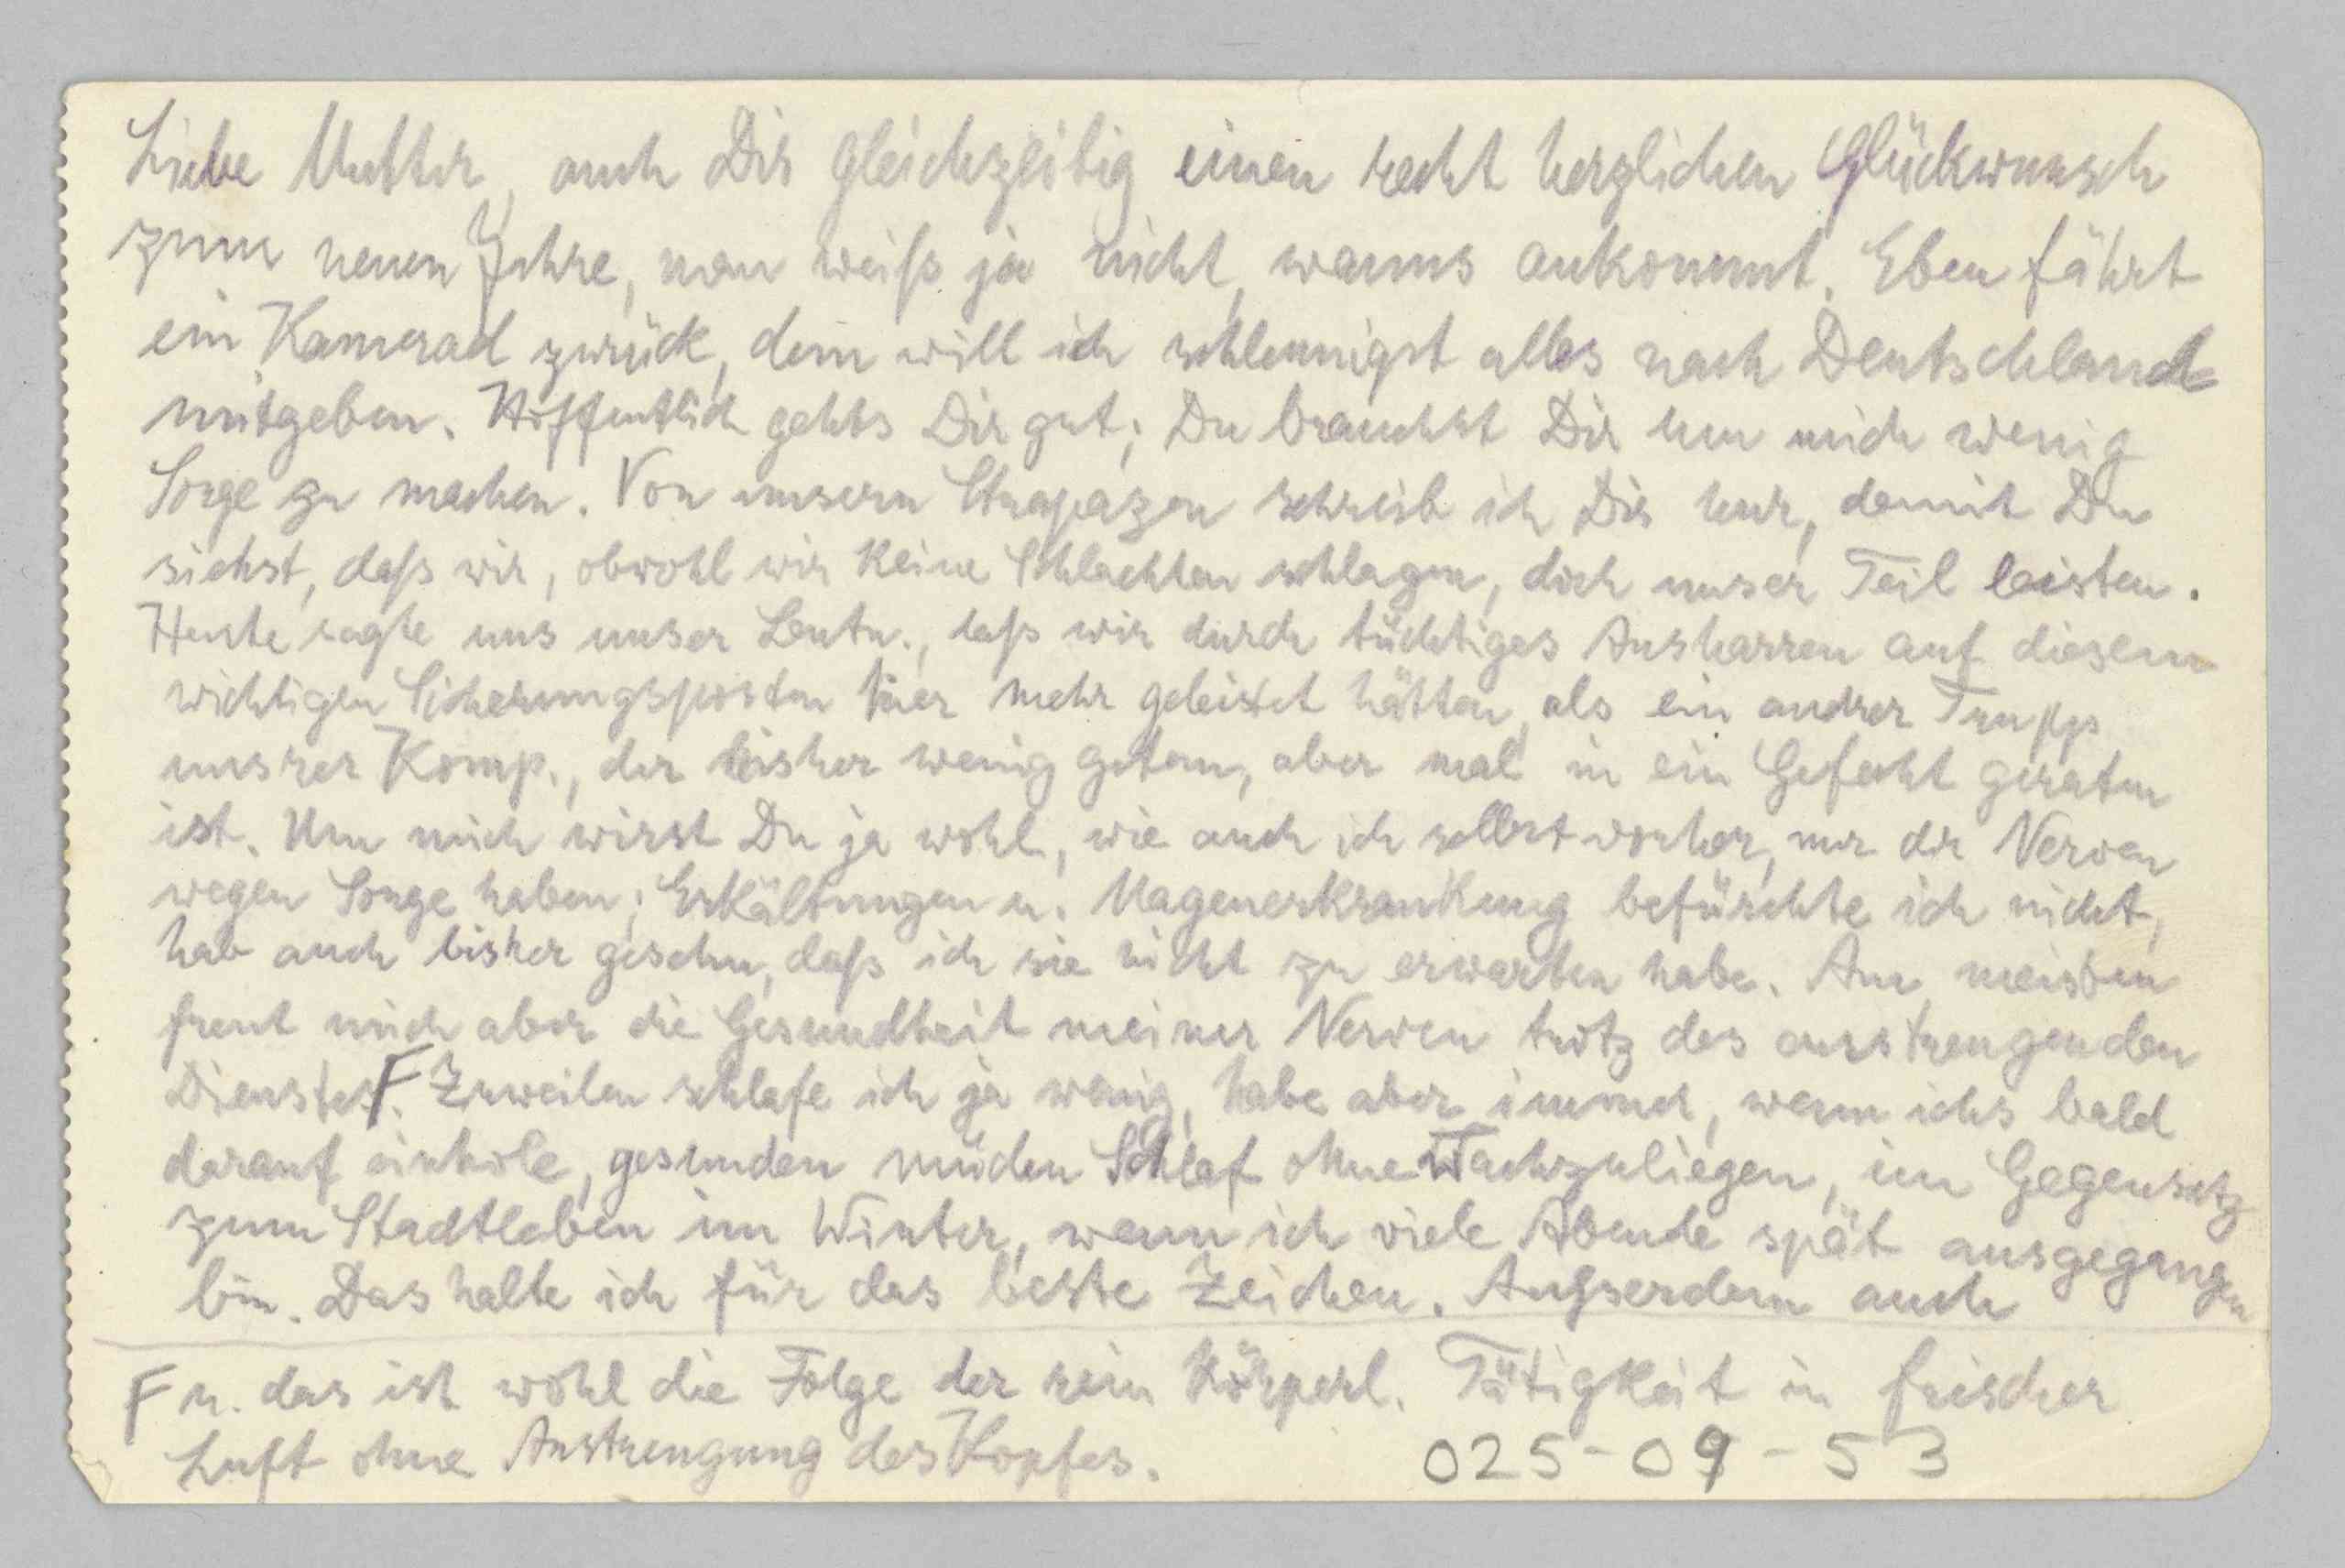 Liebe Mutter, auch Dir gleichzeitig einen recht herzlichen Glückwunsch
zum neuen Jahre, man weiß ja nicht, wanns ankommt. Eben fährt
ein Kamerad zurück, dem will ich schleunigst alles nach Deutschland
mitgeben. Hoffentlich gehts Dir gut; Du brauchst Dir um mich wenig
Sorge zu machen. Von unsern Strapazen schreib ich Dir nur, damit Du
siehst, daß wir, obwohl wir keine Schlachten schlagen, doch unser Teil leisten.
Heute sagte uns unser Leutn., daß wir durch tüchtiges Ausharren auf diesem
wichtigen Sicherungsposten hier mehr geleistet hätten, als ein andrer Trupp
unsrer Komp., der bisher wenig getan, aber mal in ein Gefecht geraten
ist. Um mich wirst Du ja wohl, wie auch ich selbst vorher, nur der Nerven
wegen Sorge haben; Erkältungen u. Magenerkrankung befürchte ich nicht,
hab auch bisher gesehn, daß ich sie nicht zu erwarten habe. Am meisten
freut mich aber die Gesundheit meiner Nerven trotz des anstrengenden
Dienstes F. Zuweilen schlafe ich ja wenig, habe aber immer, wenn ichs bald
darauf einhole, gesunden müden Schlaf ohne Wachzuliegen, im Gegensatz
zum Stadtleben im Winter, wenn ich viele Abende spät ausgegangen
bin. Das halte ich für das beste Zeichen. Außerdem auch
F u. das ist wohl die Folge der rein körperl. Tätigkeit in frischer
Luft ohne Anstrengung des Kopfes.
025-09-53